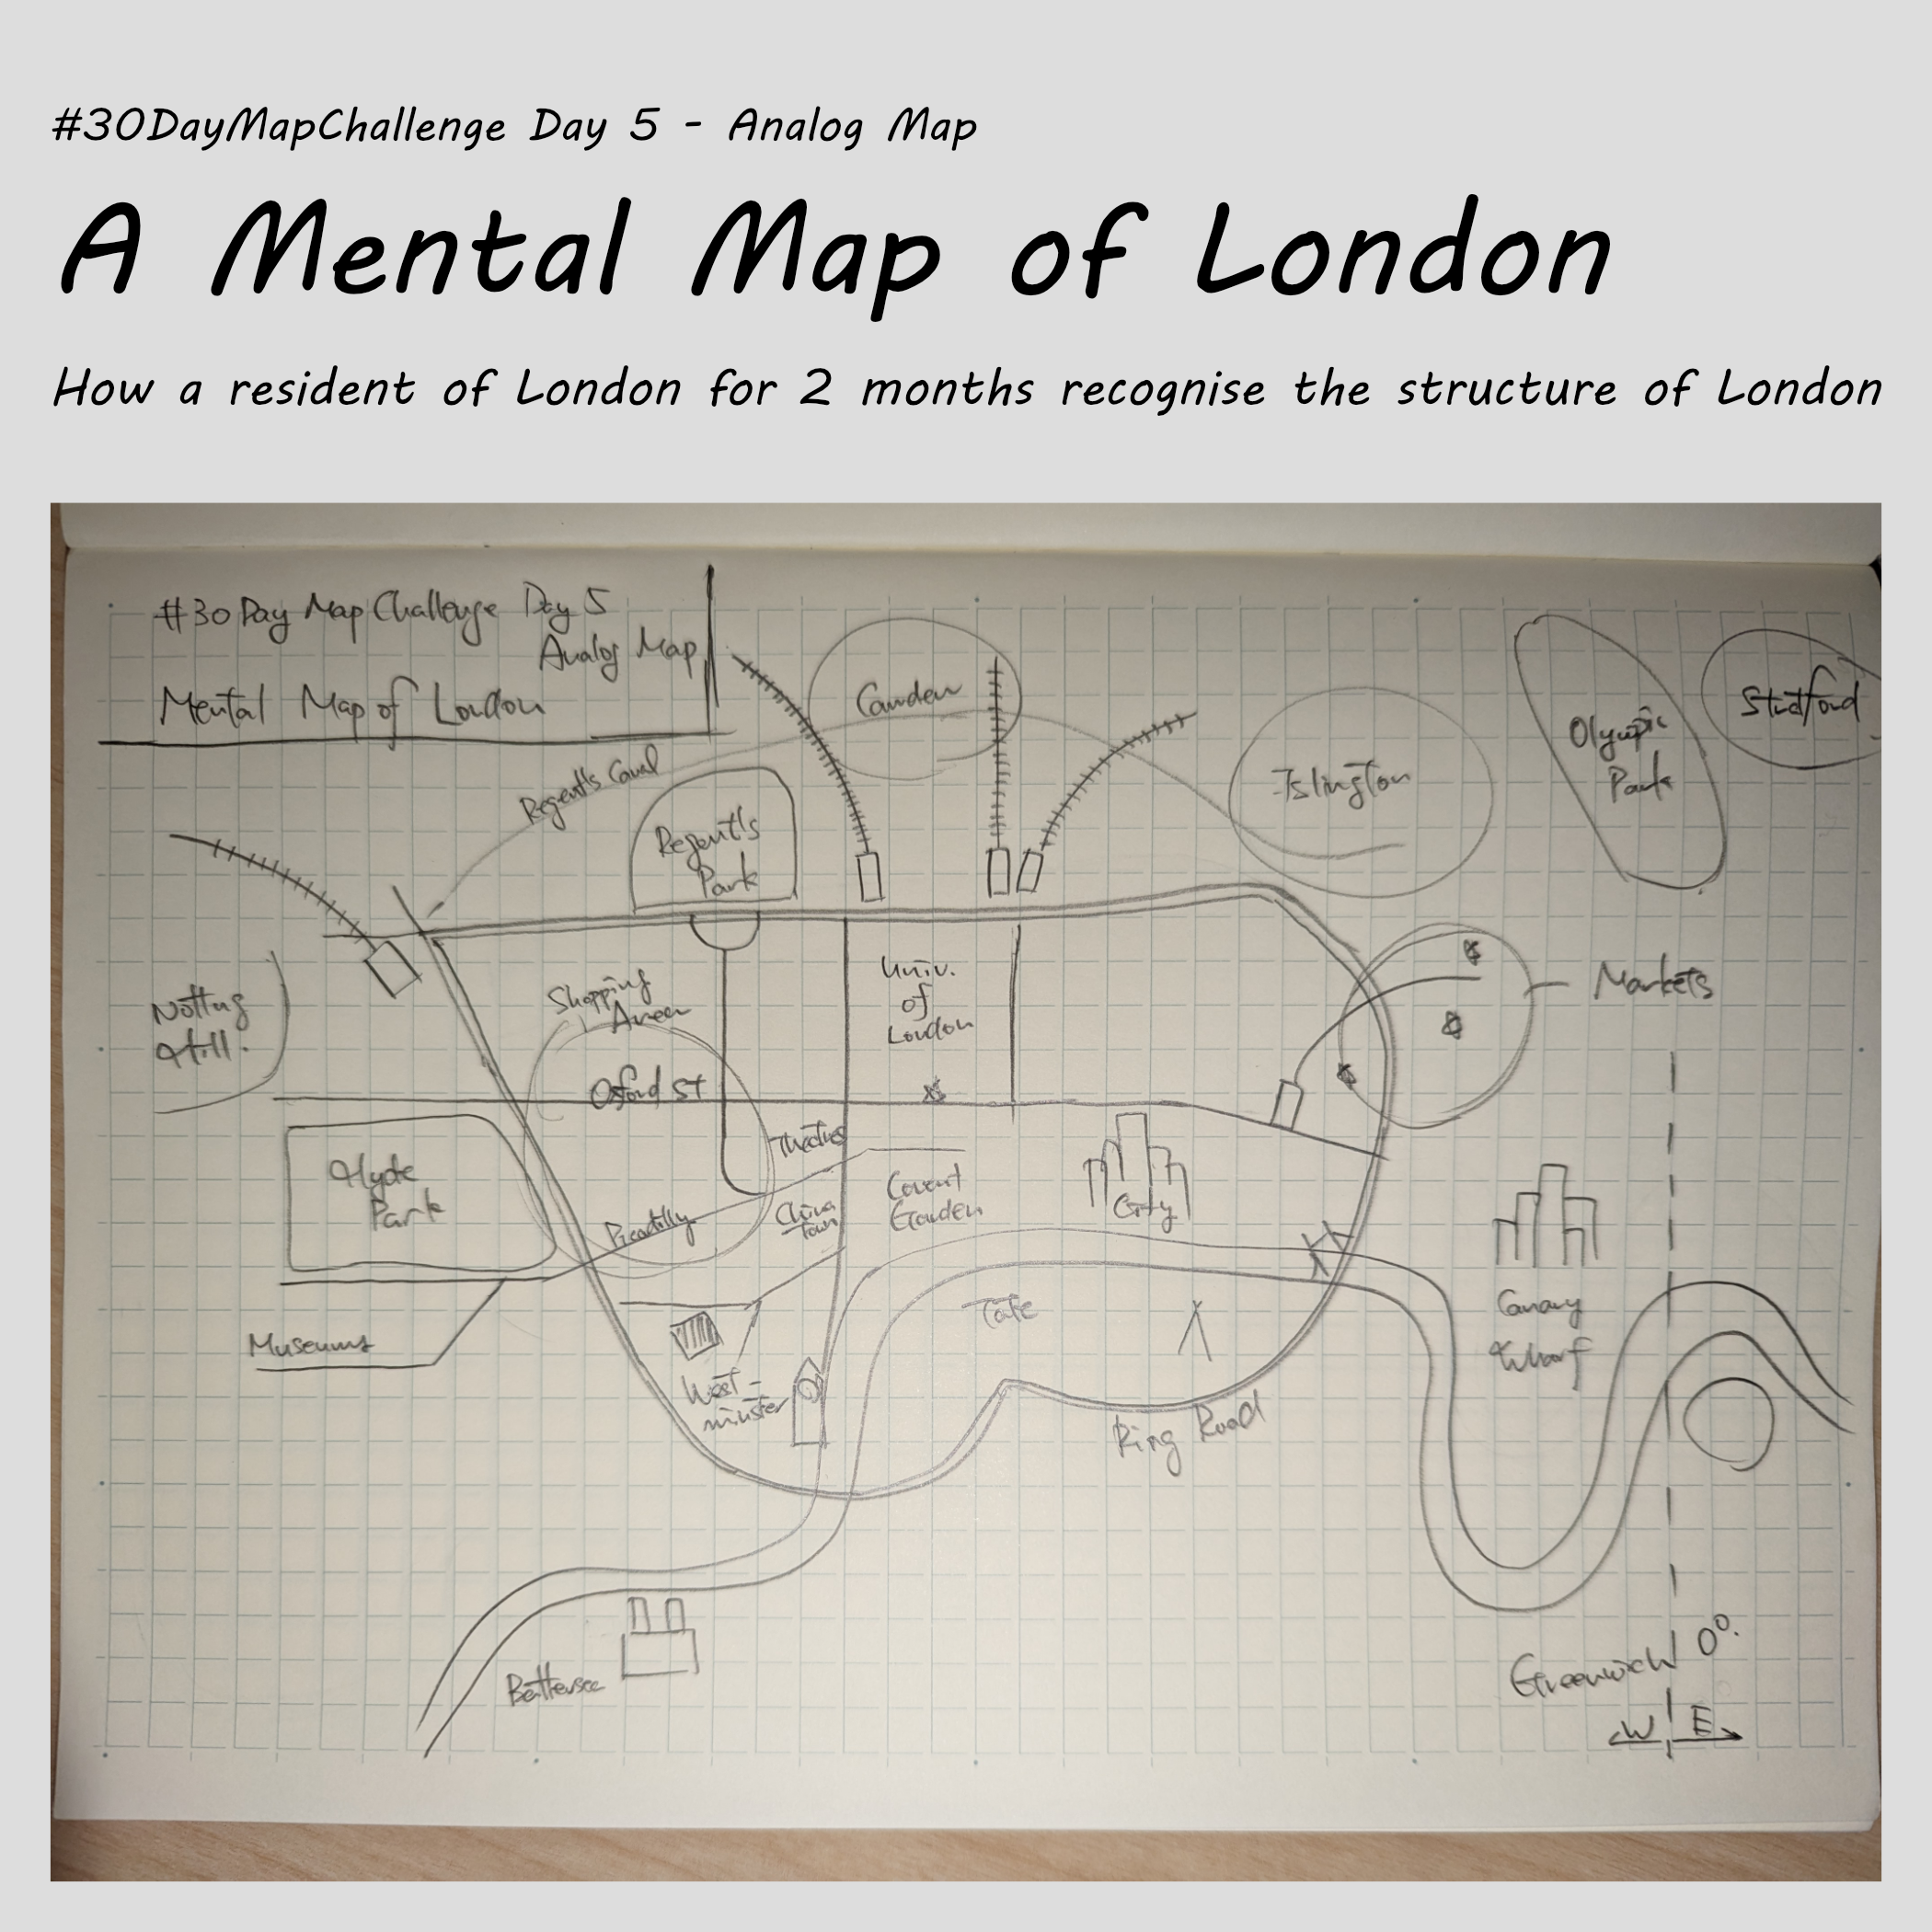 #30DayMapChallenge Day 5 - Analog Map
A Mental Map of London
How a resident of London for 2 months recognise the structure of London
#30 Day Map Challenge Day 5
Analog Map
Mental Map of London
Camden
Stratford
Olympic
Park
Islington
Regent's Canal
Regent's
Park
Notting
Hill.
Shopping
Area
Univ.
of
London
Markets
Oxford St
Theatres
Hyde
Park
Picadilly
China
Town
Covent
Garden
City
Museums
Tate
Canary
Wharf
West-
minster
Ring Road
Battersea
Greenwich 0°.
W E